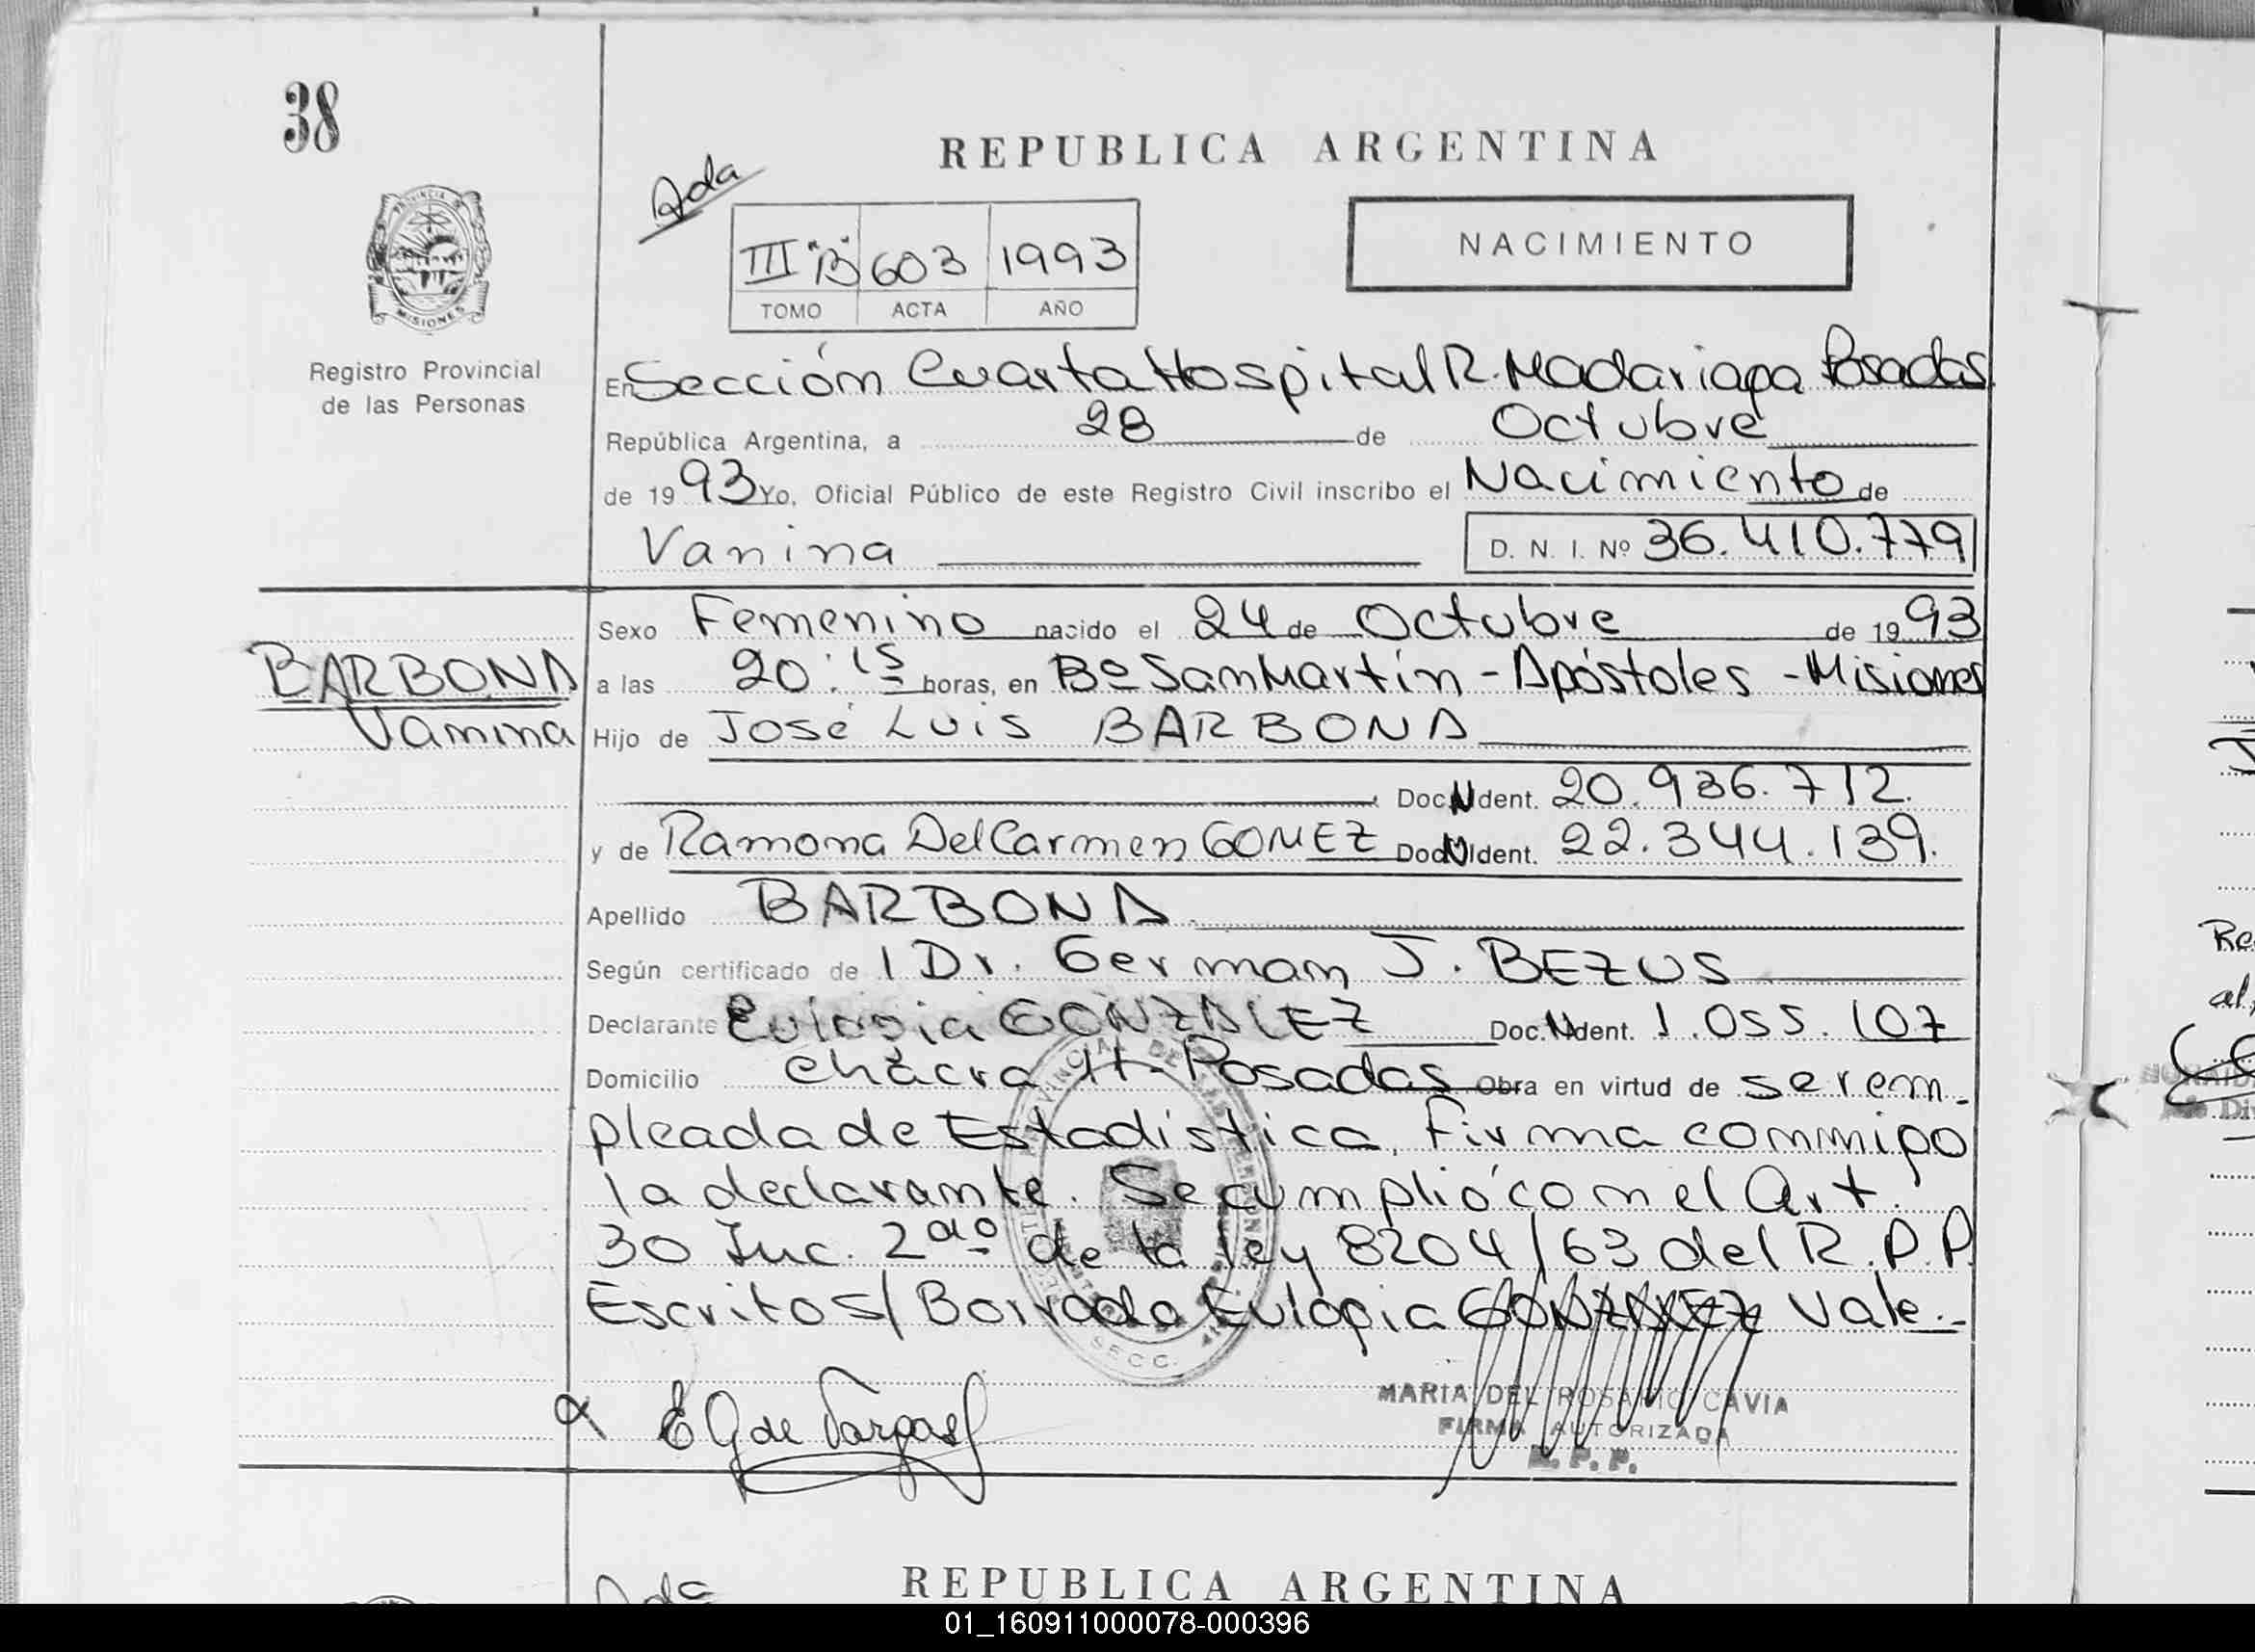 38
REPUBLICA ARGENTINA
Ada
PROVINCIA DE
MISIONES
III "B" 603 1993
TOMO ACTA AÑO
NACIMIENTO
Registro Provincial
de las Personas
En Sección Cuarta Hospital R. Madariaga Posadas.
República Argentina, a 28 de Octubre
de 1993 Yo, Oficial Público de este Registro Civil inscribo el Nacimiento de
Vanina D. N. I. Nº 36.410.779
Sexo Femenino nacido el 24 de Octubre de 1993
BARBONA a las 20:15 horas, en Bº San Martín - Apóstoles - Misiones
Vanina Hijo de José Luis BARBONA
Doc. N Ident. 20.936.712.
y de Ramona Del Carmen GOMEZ Doc. N Ident. 22.344.139.
Apellido BARBONA
Según certificado de l Dr. German J. BEZUS
Declarante Eulogia GONZALEZ Doc. N Ident. 1.055.107
Domicilio Chacra Posadas Obra en virtud de ser em-
pleada de Estadística. Firma conmigo
la declarante. Se cumplió con el Art.
30 Inc. 2do de la ley 8204/63 del R.P.P.
Escrito s/ Borrado Eulogia GONZALEZ Vale.-
SECC.
E G de Vargas
MARIA DEL ROSARIO CAVIA
FIRMA AUTORIZADA
R. P. P.
REPUBLICA ARGENTINA
Ada
01_160911000078-000396